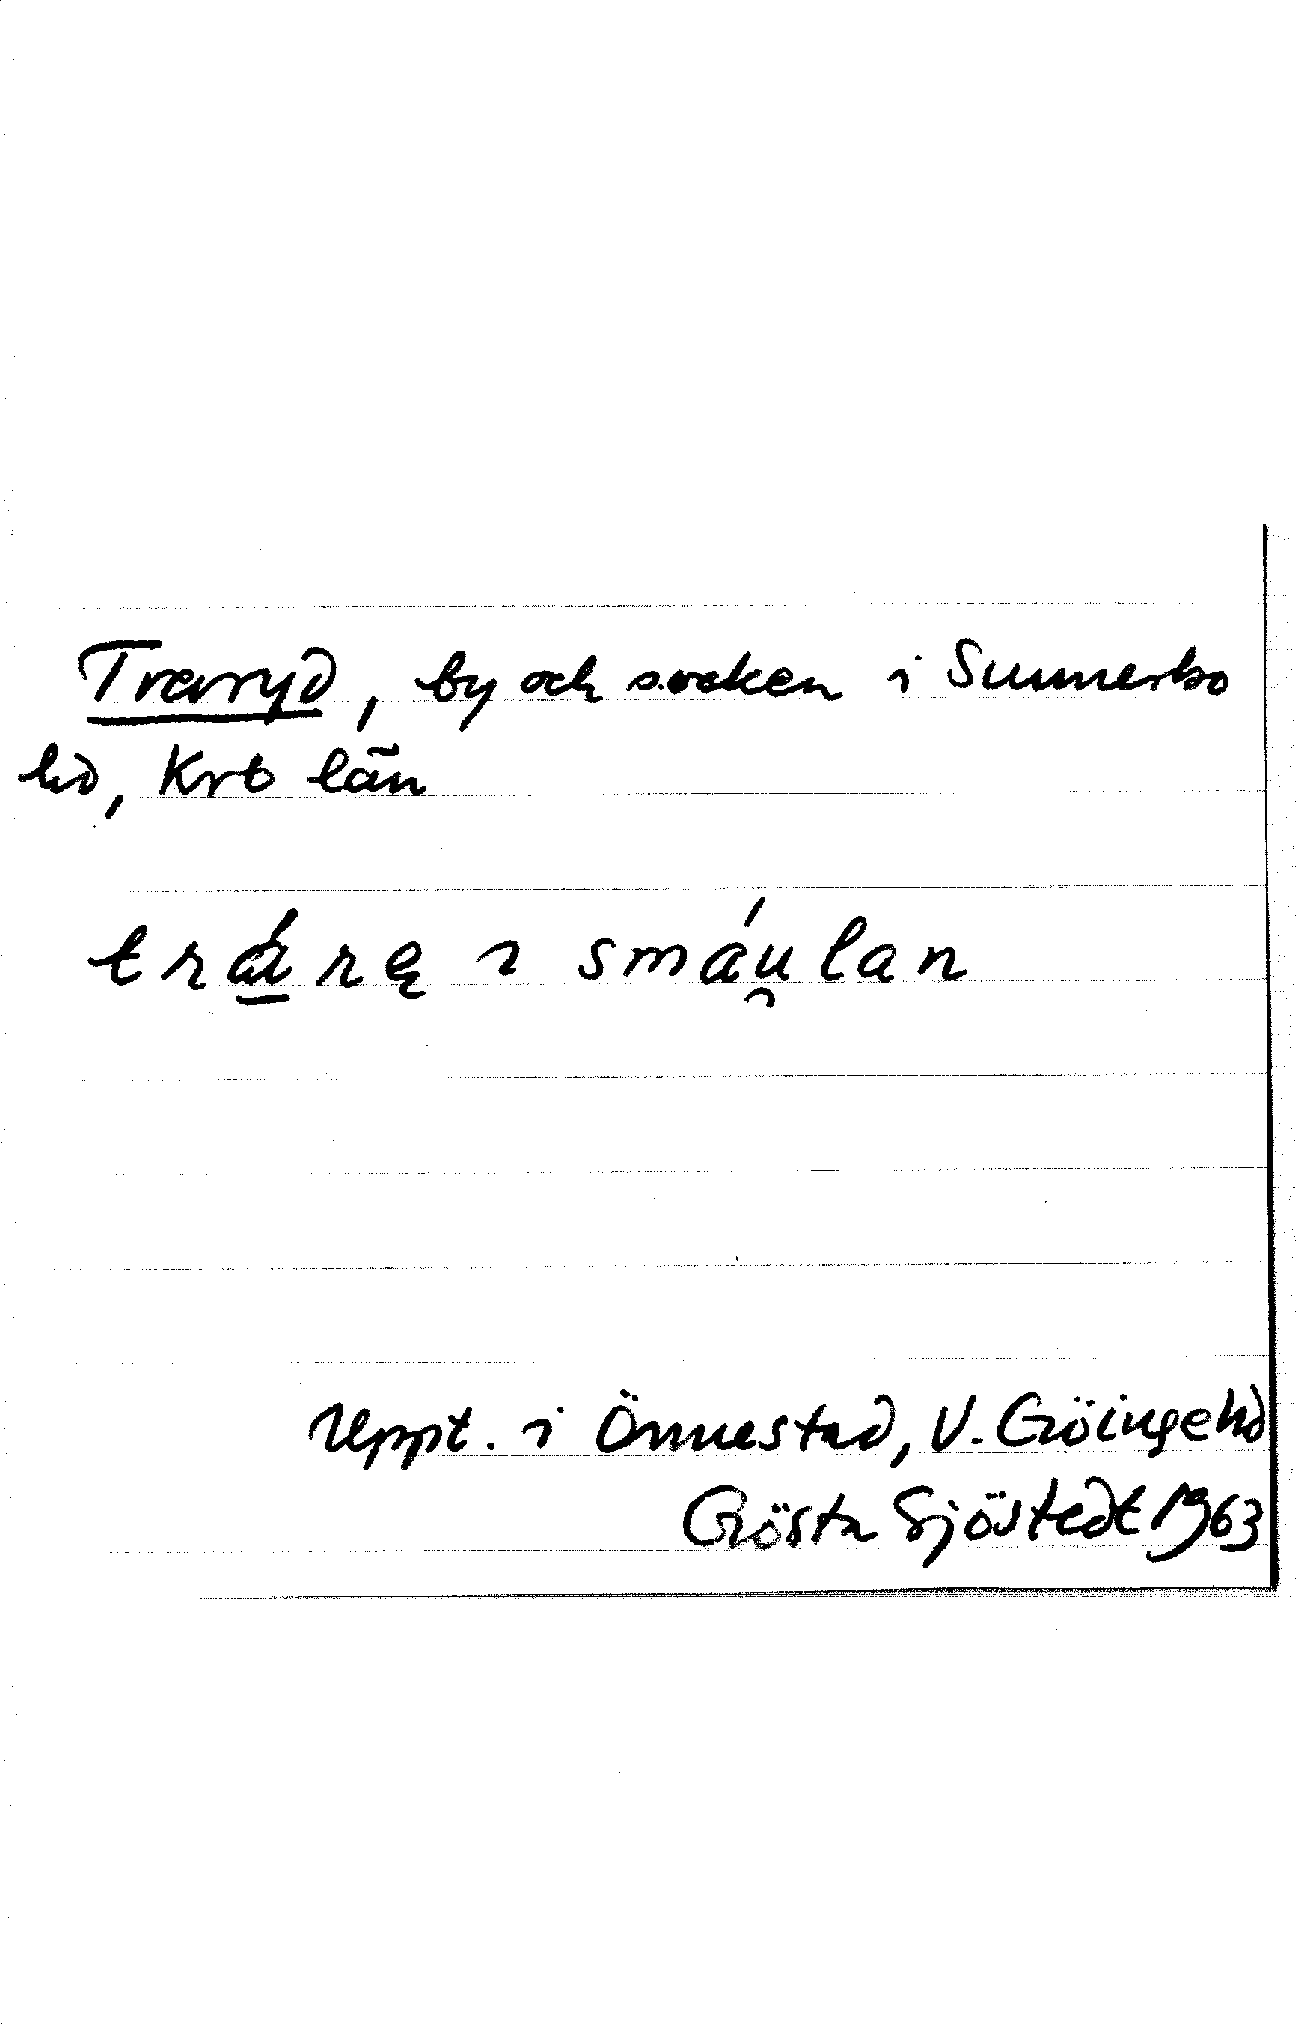 Traryd, by och socken i Sunnerbo
hd, Krb län
trá̱rę ı smáu̯lan
Uppt. i Önnestad, V. Göingehd
Gösta Sjöstedt 1963